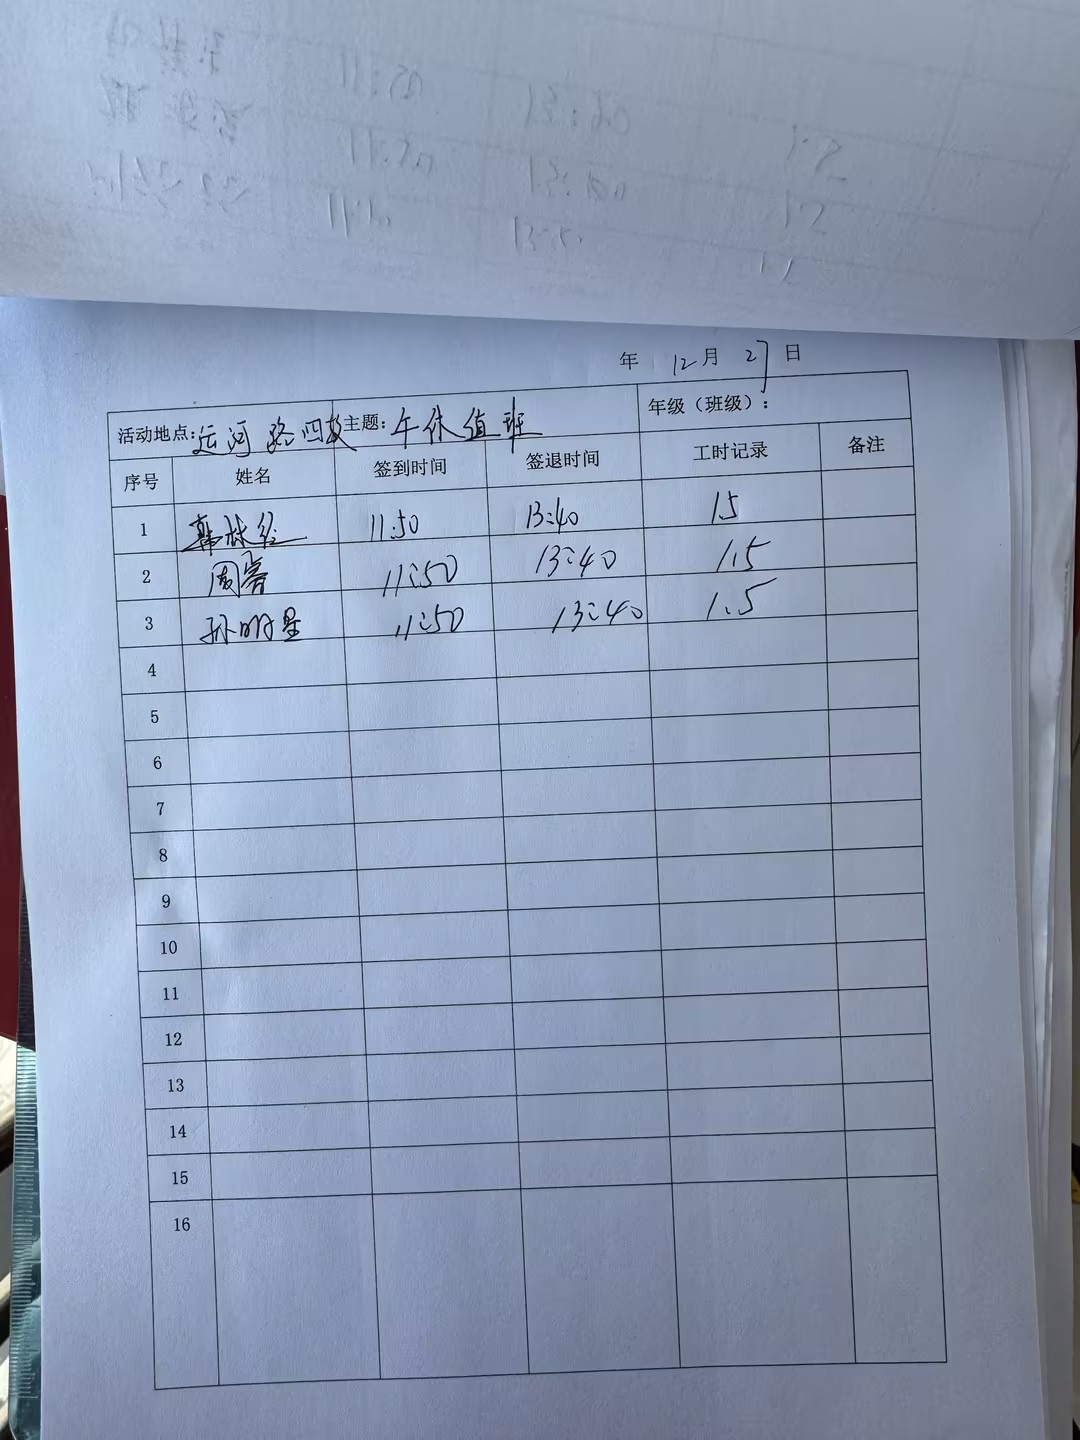 年 12月 27日
活动地点:运河路四校 主题:午休值班 年级（班级）:
序号 姓名 签到时间 签退时间 工时记录 备注
1 韩林 11:50 13:40 1.5
2 周 11:50 13:40 1.5
3 孙明星 11:50 13:40 1.5
4
5
6
7
8
9
10
11
12
13
14
15
16